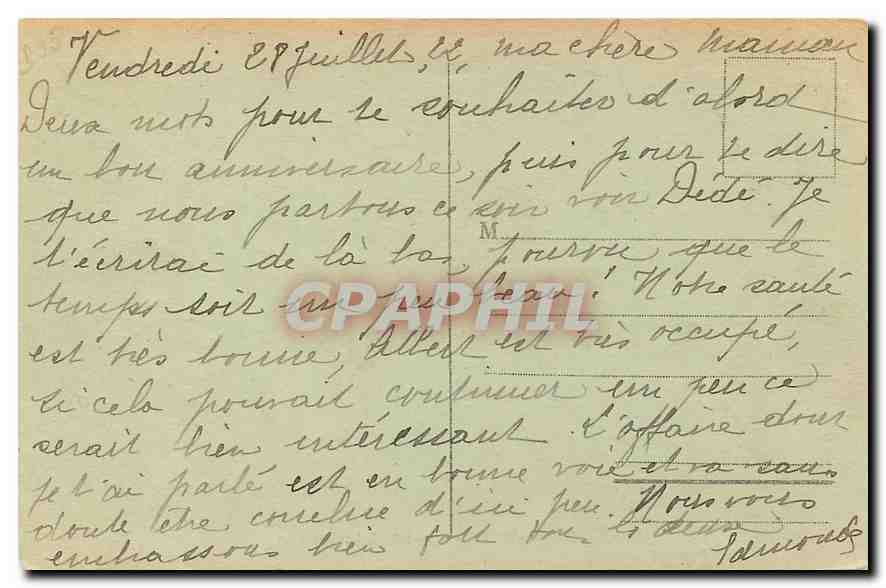 Vendredi 28 Juillet 22, ma chère maman
Deux mots pour te souhaiter d'abord
un bon anniversaire, puis pour te dire
que nous partons ce soir voir Dédé. Je
M
t'écrirai de là bas, pourvu que le
temps soit un peu beau! Notre santé
CPAPHIL
est très bonne, Albert est très occupé,
si cela pouvait continuer un peu ce
serait bien intéressant. L'affaire dont
je t'ai parlé est en bonne voie et va sans
doute être conclue d'ici peu. Nous vous
embrassons bien fort tous les deux
Edmonde